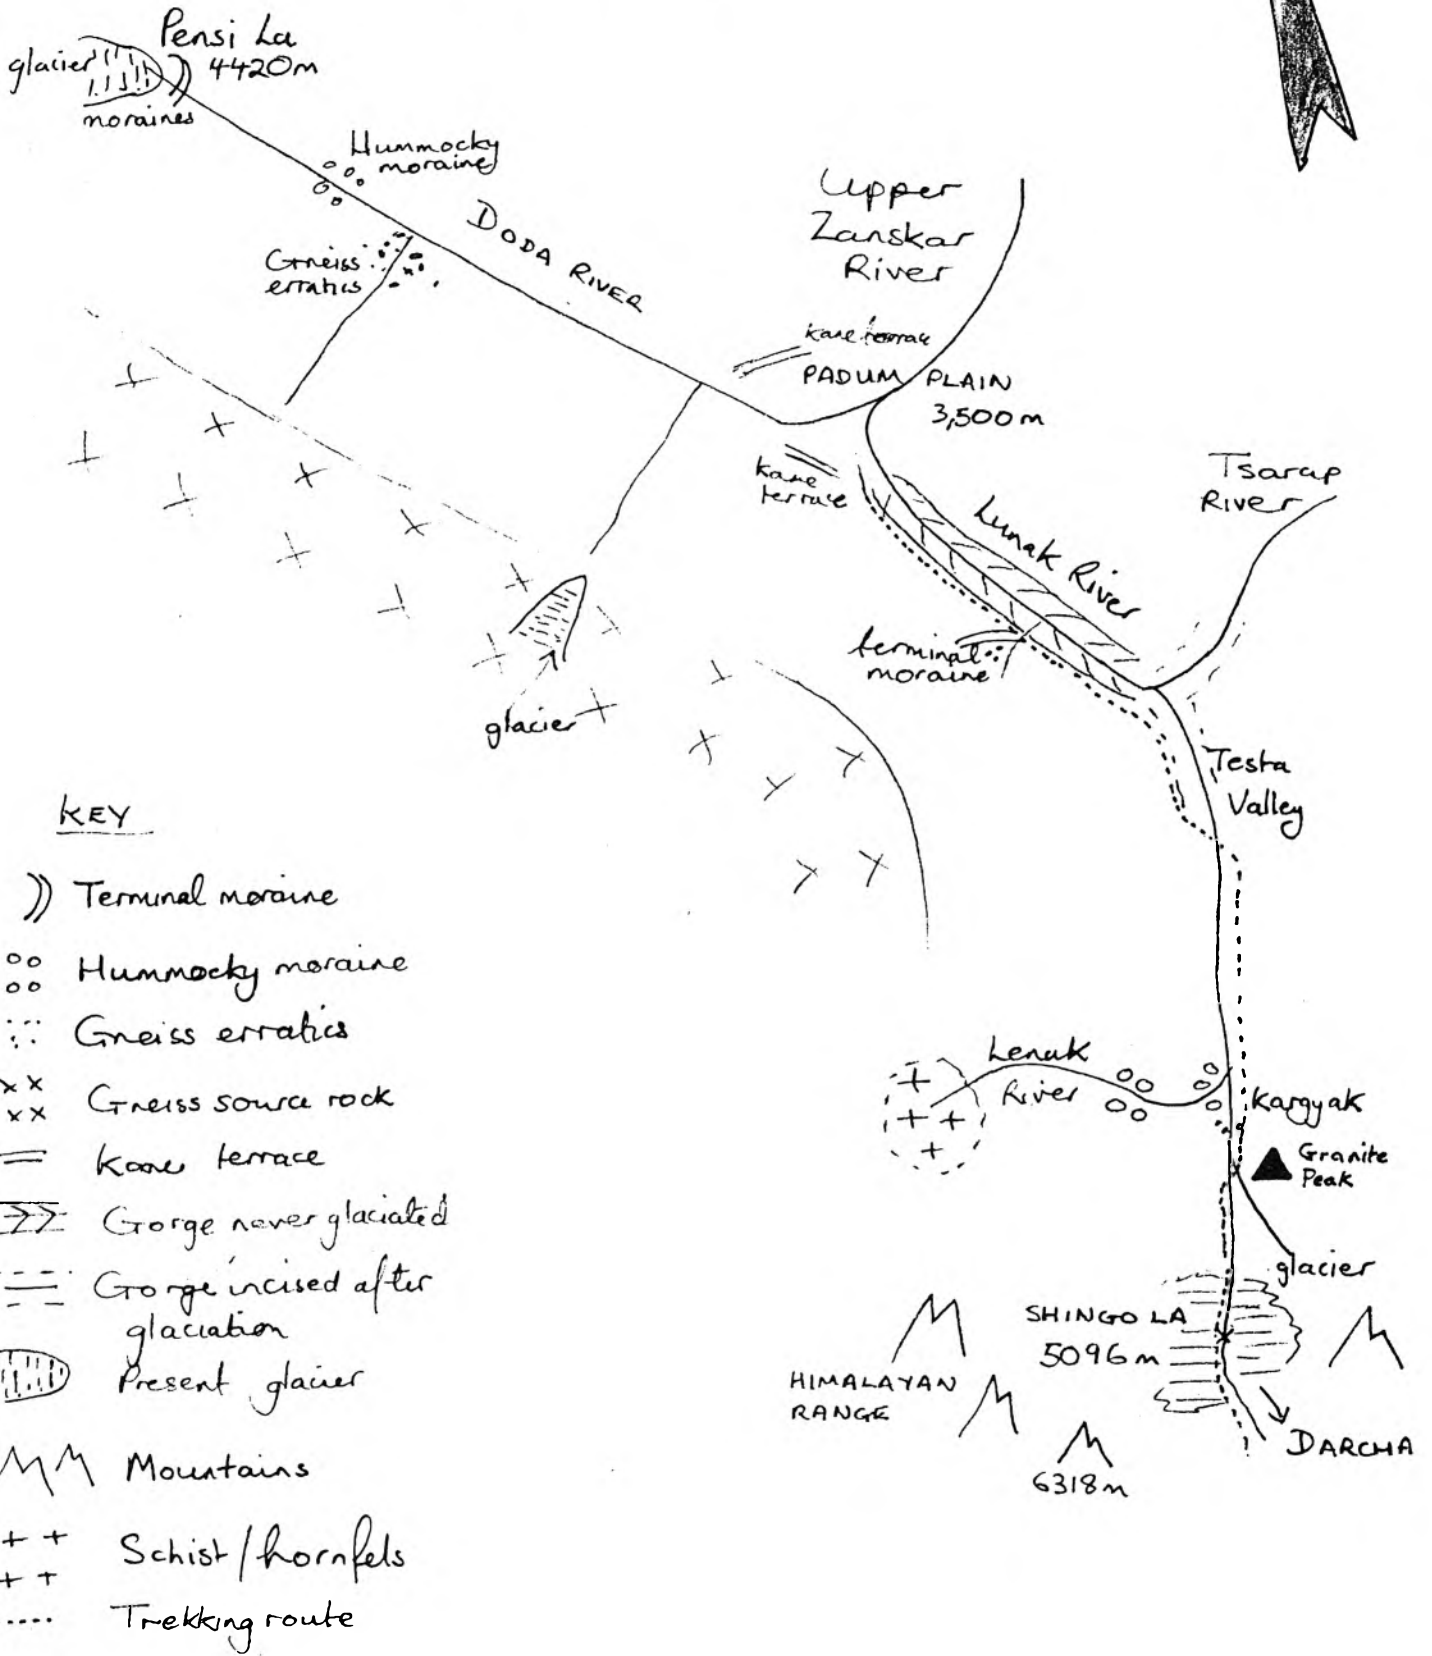 Pensi La
4420m
glacier
moraines
Hummocky
moraine
DODA RIVER
Gneiss
erratics
Upper
Zanskar
River
Kame terrace
PADUM PLAIN
3,500m
Kame
terrace
Tsarap
River
Lunak River
terminal
moraine
glacier
Testa
Valley
Lenak
River
Kargyak
Granite
Peak
glacier
SHINGO LA
5096m
HIMALAYAN
RANGE
6318m
DARCHA
KEY
Terminal moraine
Hummocky moraine
Gneiss erratics
Gneiss source rock
Kame terrace
Gorge never glaciated
Gorge incised after
glaciation
Present glacier
Mountains
Schist/hornfels
Trekking route